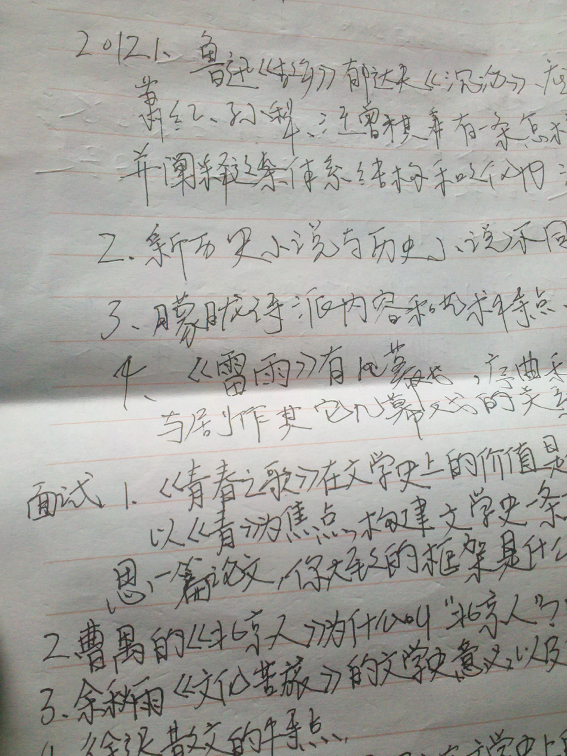 2012.1、鲁迅《故乡》郁达夫《沉沦》
萧红、孙犁、汪曾祺等有一条怎样
并阐释这条体系结构和
2、新历史小说与历史小说不同
3、朦胧诗派内容和艺术特点、
4、《雷雨》有几幕戏，序曲
与剧作其它几幕戏的关系
面试 1.《青春之歌》在文学史上的价值是
以《青》为焦点，构建文学史一条
思一篇论文，你大致的框架是什么
2.曹禺的《北京人》为什么叫“北京人”？
3.余秋雨《文化苦旅》的文学史意义，以及
散文的特点